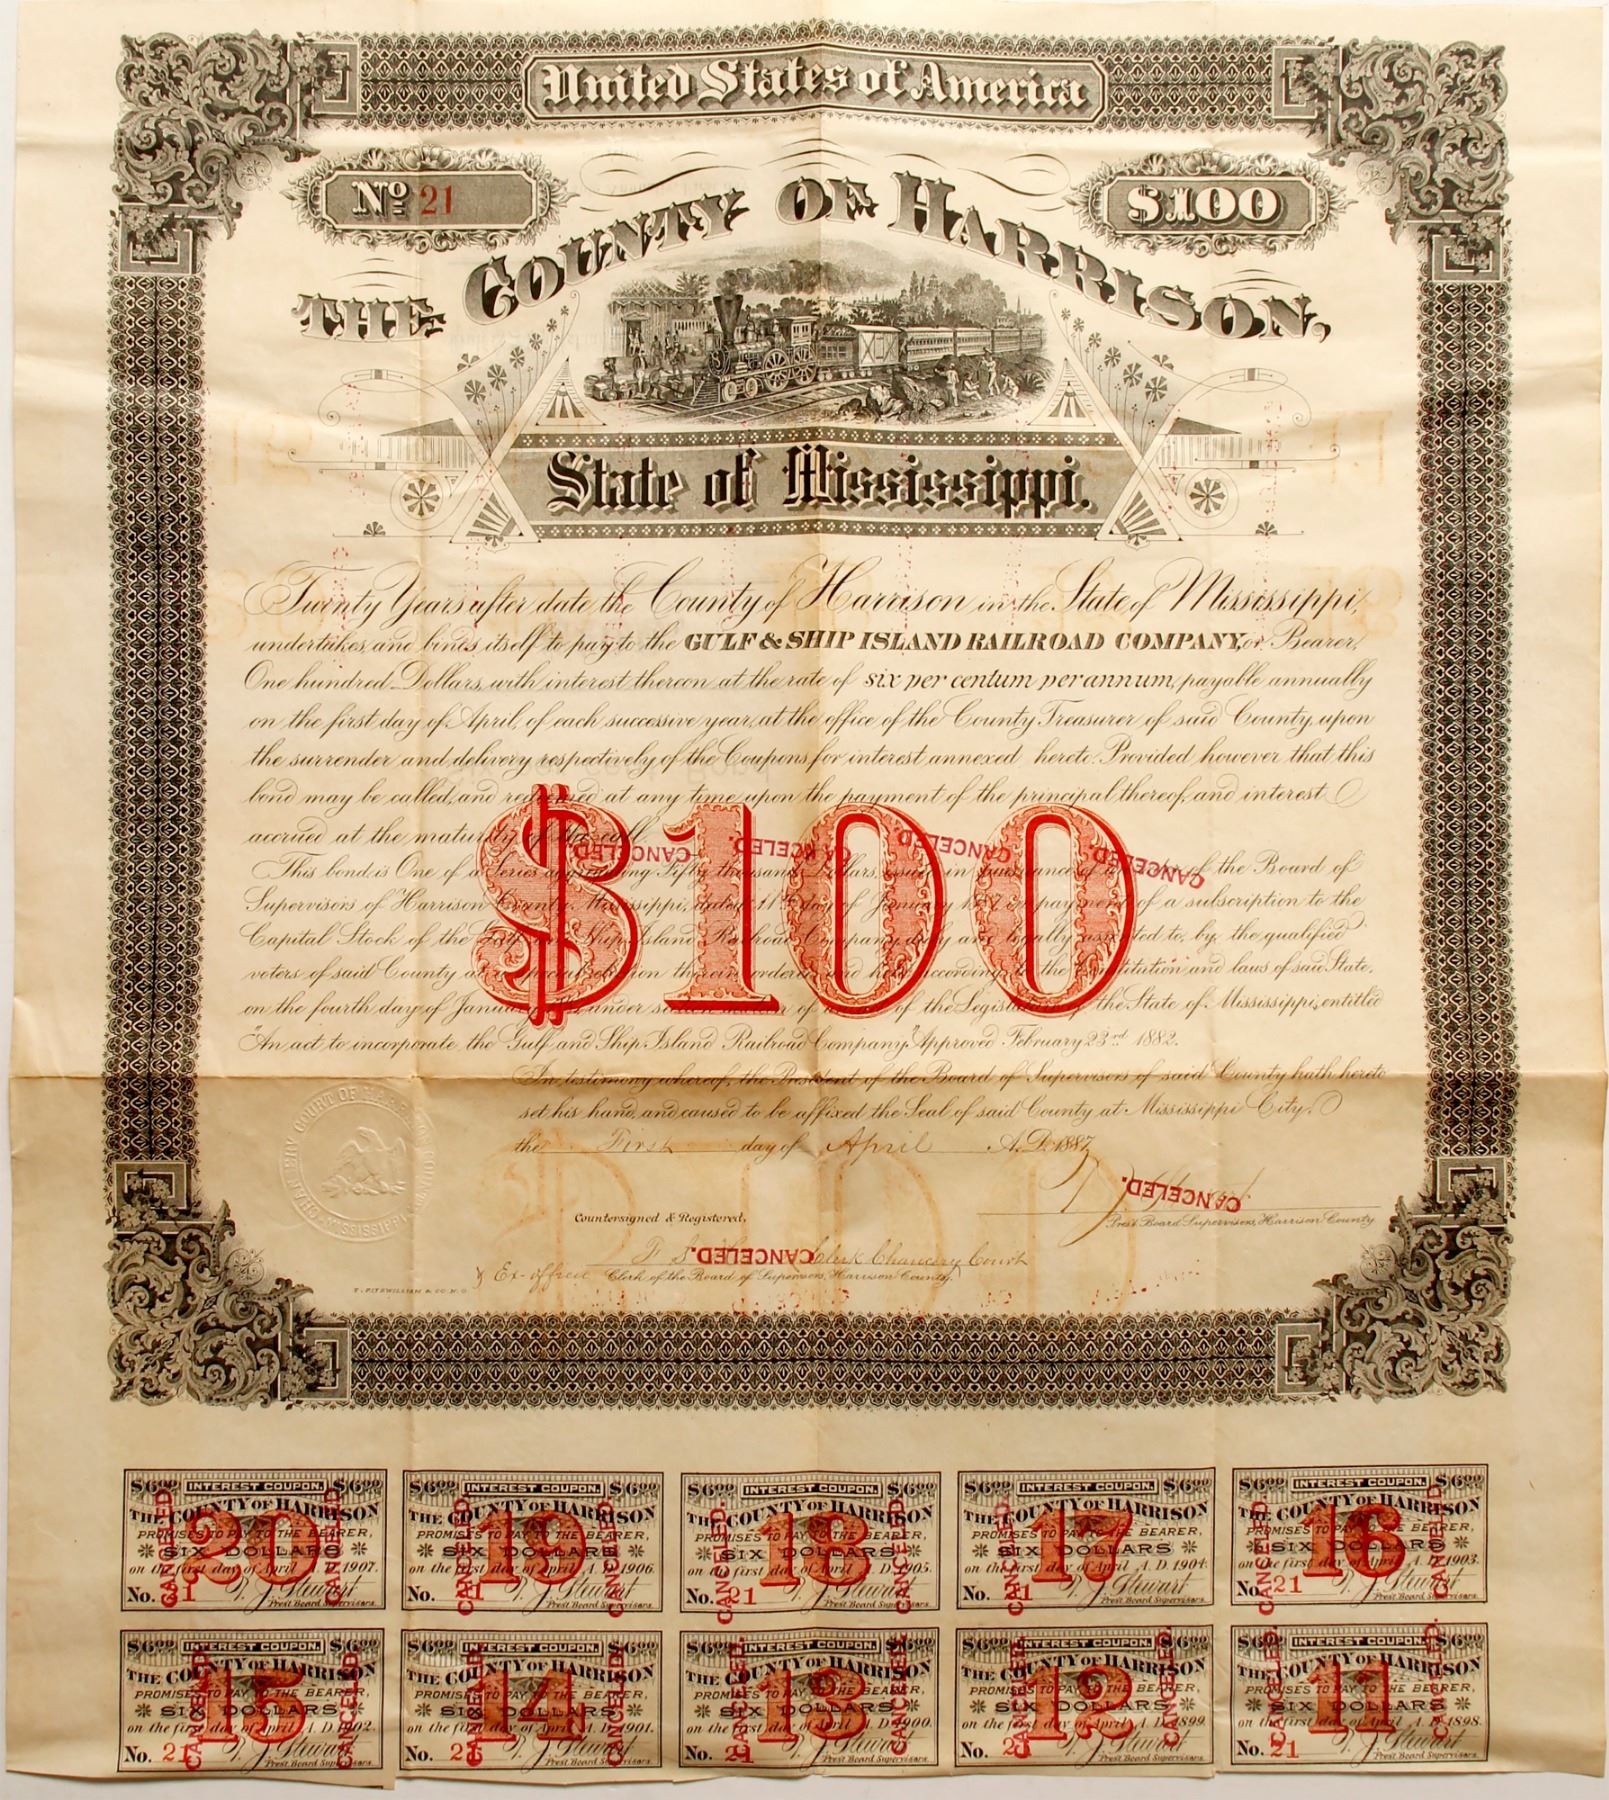 United States of America
No 21
$100
THE COUNTY OF HARRISON,
State of Mississippi.
Twenty Years after date the County of Harrison in the State of Mississippi,
undertakes and binds itself to pay to the GULF & SHIP ISLAND RAILROAD COMPANY, or Bearer,
One hundred Dollars, with interest thereon at the rate of six per centum per annum, payable annually
on the first day of April, of each successive year, at the office of the County Treasurer of said County, upon
the surrender and delivery respectively of the Coupons for interest annexed hereto. Provided however that this
bond may be called, and redeemed at any time upon the payment of the principal thereof, and interest
accrued at the maturity of the call.
This bond is One of a Series aggregating Fifty thousand Dollars, issued in pursuance of the Board of
Supervisors of Harrison County, Mississippi, dated 11th day of January 1887 in payment of a subscription to the
Capital Stock of the Gulf and Ship Island Railroad Company duly and legally assented to, by the qualified
voters of said County at a special election therein ordered and held according to the Constitution and laws of said State,
on the fourth day of January under of the Legislature of the State of Mississippi, entitled
"An act to incorporate the Gulf and Ship Island Railroad Company." Approved February 23rd 1882.
$100
CANCELED. CANCELED. CANCELED. CANCELED.
In testimony whereof, the President of the Board of Supervisors of said County hath hereto
set his hand, and caused to be affixed the Seal of said County at Mississippi City,
the First day of April A.D. 1887
CHANCERY COURT OF HARRISON COUNTY MISSISSIPPI
CANCELED.
Prest Board Supervisors, Harrison County
Countersigned & Registered,
CANCELED. Clerk Chancery Court
& Ex-officio Clerk of the Board of Supervisors, Harrison County
T. FITZWILLIAM & CO. N.O.
$6.00 INTEREST COUPON. $6.00
THE COUNTY OF HARRISON
PROMISES TO PAY TO THE BEARER,
SIX DOLLARS
on the first day of April A.D. 1907.
No. 21 T. J. Stewart
Prest Board Supervisors.
20
CANCELED. CANCELED.
$6.00 INTEREST COUPON. $6.00
THE COUNTY OF HARRISON
PROMISES TO PAY TO THE BEARER,
SIX DOLLARS
on the first day of April A.D. 1906.
No. 21 T. J. Stewart
Prest Board Supervisors.
19
CANCELED. CANCELED.
$6.00 INTEREST COUPON. $6.00
THE COUNTY OF HARRISON
PROMISES TO PAY TO THE BEARER,
SIX DOLLARS
on the first day of April A.D. 1905.
No. 21 T. J. Stewart
Prest Board Supervisors.
18
CANCELED. CANCELED.
$6.00 INTEREST COUPON. $6.00
THE COUNTY OF HARRISON
PROMISES TO PAY TO THE BEARER,
SIX DOLLARS
on the first day of April A.D. 1904.
No. 21 T. J. Stewart
Prest Board Supervisors.
17
CANCELED. CANCELED.
$6.00 INTEREST COUPON. $6.00
THE COUNTY OF HARRISON
PROMISES TO PAY TO THE BEARER,
SIX DOLLARS
on the first day of April A.D. 1903.
No. 21 T. J. Stewart
Prest Board Supervisors.
16
CANCELED. CANCELED.
$6.00 INTEREST COUPON. $6.00
THE COUNTY OF HARRISON
PROMISES TO PAY TO THE BEARER,
SIX DOLLARS
on the first day of April A.D. 1902.
No. 21 T. J. Stewart
Prest Board Supervisors.
15
CANCELED. CANCELED.
$6.00 INTEREST COUPON. $6.00
THE COUNTY OF HARRISON
PROMISES TO PAY TO THE BEARER,
SIX DOLLARS
on the first day of April A.D. 1901.
No. 21 T. J. Stewart
Prest Board Supervisors.
14
CANCELED. CANCELED.
$6.00 INTEREST COUPON. $6.00
THE COUNTY OF HARRISON
PROMISES TO PAY TO THE BEARER,
SIX DOLLARS
on the first day of April A.D. 1900.
No. 21 T. J. Stewart
Prest Board Supervisors.
13
CANCELED. CANCELED.
$6.00 INTEREST COUPON. $6.00
THE COUNTY OF HARRISON
PROMISES TO PAY TO THE BEARER,
SIX DOLLARS
on the first day of April A.D. 1899.
No. 21 T. J. Stewart
Prest Board Supervisors.
12
CANCELED. CANCELED.
$6.00 INTEREST COUPON. $6.00
THE COUNTY OF HARRISON
PROMISES TO PAY TO THE BEARER,
SIX DOLLARS
on the first day of April A.D. 1898.
No. 21 T. J. Stewart
Prest Board Supervisors.
11
CANCELED. CANCELED.